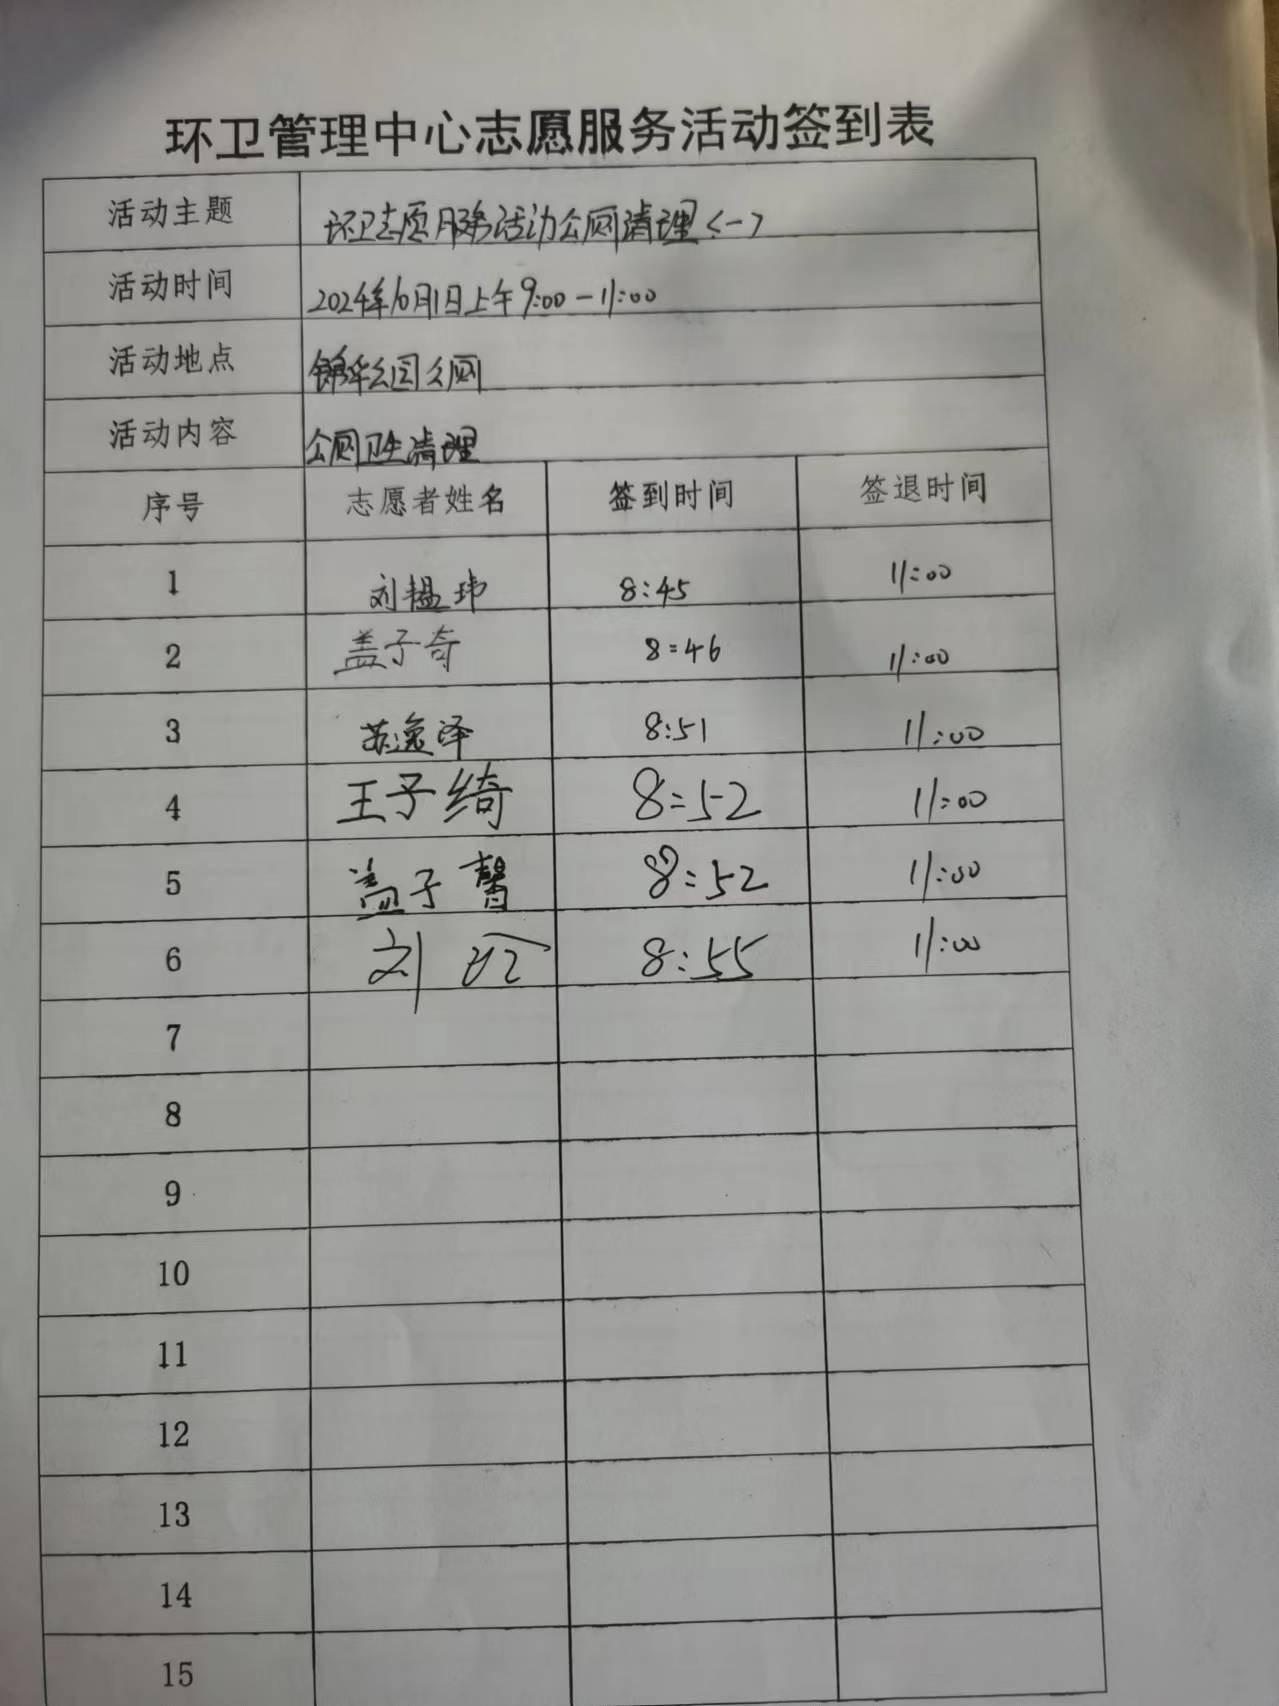 环卫管理中心志愿服务活动签到表
活动主题 环卫志愿服务活动公厕清理<一>
活动时间 2024年10月1日上午9:00-11:00
活动地点 锦华公园公厕
活动内容 公厕卫生清理
序号 志愿者姓名 签到时间 签退时间
1 刘韫玮 8:45 11:00
2 盖子奇 8:46 11:00
3 苏逸泽 8:51 11:00
4 王子绮 8:52 11:00
5 盖子馨 8:52 11:00
6 刘 8:55 11:00
7
8
9
10
11
12
13
14
15